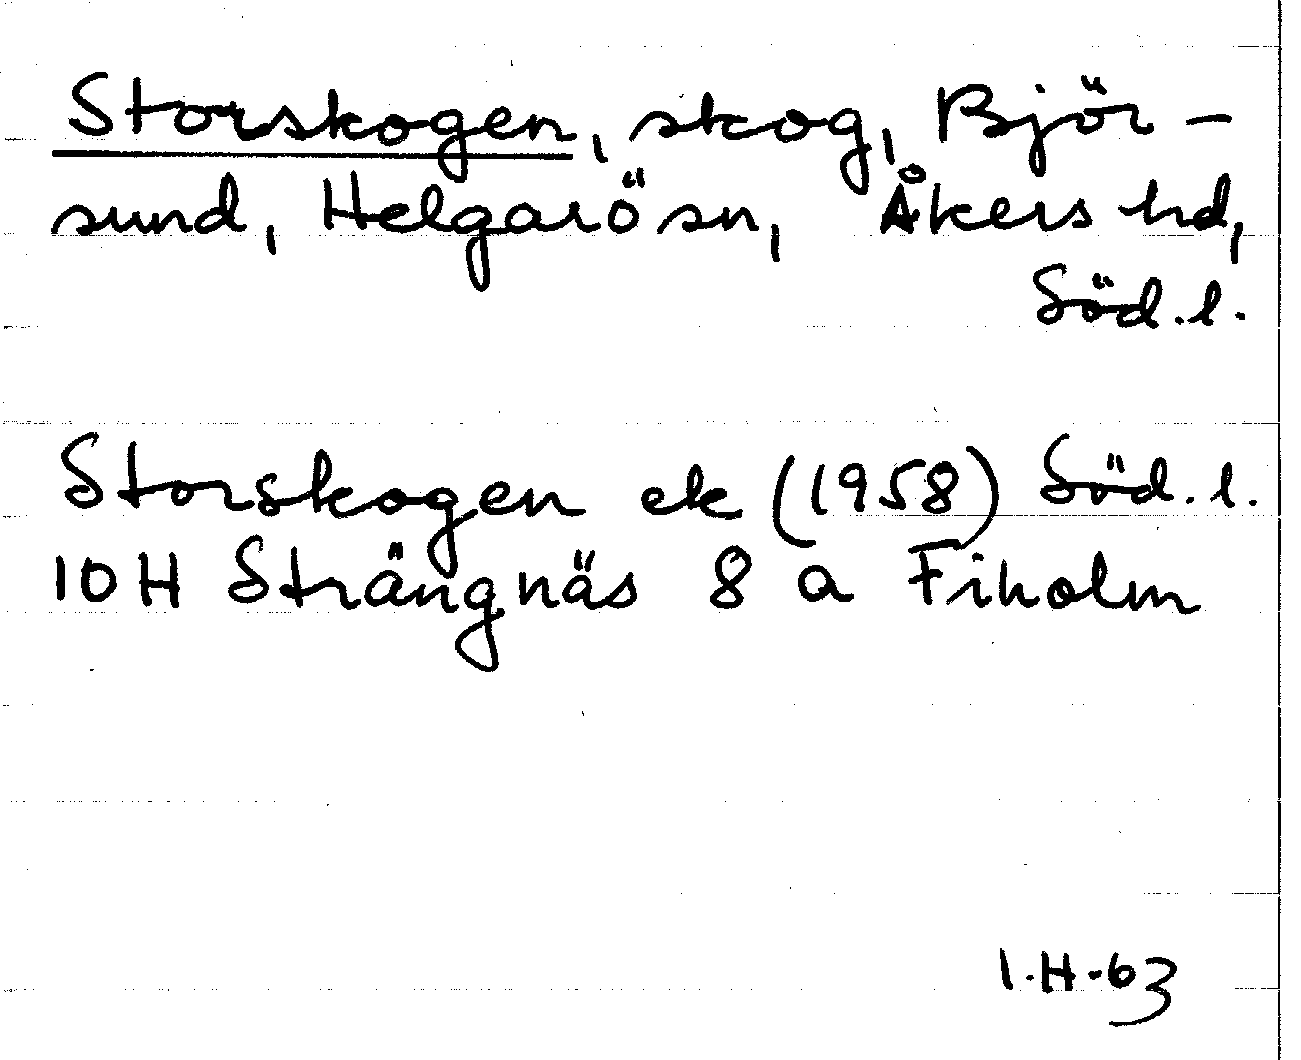 Storskogen, skog, Björ-
sund, Helgarö sn, Åkers hd,
Söd.l.
Storskogen ek (1958) Söd.l.
10H Strängnäs 8 a Fiholm
I.H-63